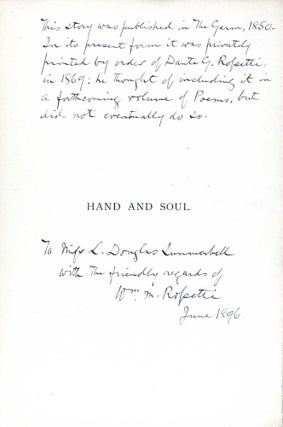 This story was published in The Germ, 1850.
In its present form it was privately
printed by order of Dante G. Rossetti,
in 1869: he thought of including it in
a forthcoming volume of Poems, but
did not eventually do so.
HAND AND SOUL.
To Miss L. Douglas
with the friendly regards of
Wm. M. Rossetti
June 1896.